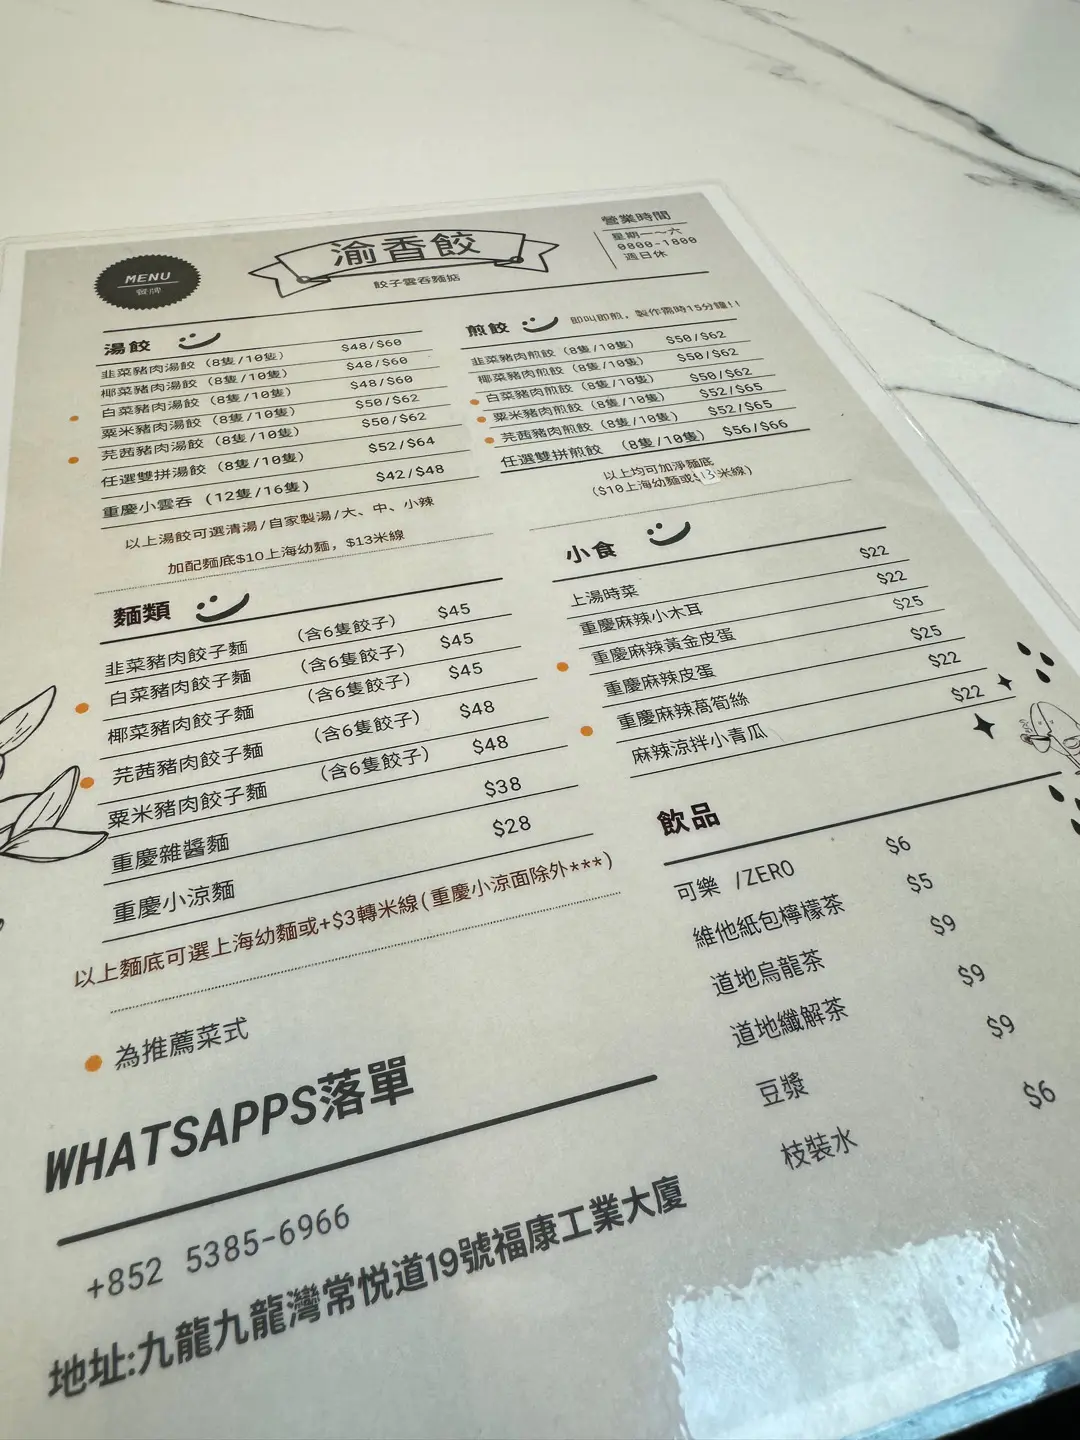 MENU
餐牌
渝香餃
餃子雲吞麵掂
營業時間
星期一~六
0800-1800
週日休
湯餃
韭菜豬肉湯餃 (8隻/10隻) $48/$60
椰菜豬肉湯餃 (8隻/10隻) $48/$60
白菜豬肉湯餃 (8隻/10隻) $48/$60
粟米豬肉湯餃 (8隻/10隻) $50/$62
芫茜豬肉湯餃 (8隻/10隻) $50/$62
任選雙拼湯餃 (8隻/10隻) $52/$64
重慶小雲吞 (12隻/16隻) $42/$48
以上湯餃可選清湯/自家製湯/大、中、小辣
加配麵底$10上海幼麵，$13米線
煎餃 即叫即煎，製作需時15分鐘!!
韭菜豬肉煎餃 (8隻/10隻) $50/$62
椰菜豬肉煎餃 (8隻/10隻) $50/$62
白菜豬肉煎餃 (8隻/10隻) $50/$62
粟米豬肉煎餃 (8隻/10隻) $52/$65
芫茜豬肉煎餃 (8隻/10隻) $52/$65
任選雙拼煎餃 (8隻/10隻) $56/$66
以上均可加淨麵底
($10上海幼麵或$13米線)
麵類
韭菜豬肉餃子麵 (含6隻餃子) $45
白菜豬肉餃子麵 (含6隻餃子) $45
椰菜豬肉餃子麵 (含6隻餃子) $45
芫茜豬肉餃子麵 (含6隻餃子) $48
粟米豬肉餃子麵 (含6隻餃子) $48
重慶雜醬麵 $38
重慶小涼麵 $28
以上麵底可選上海幼麵或+$3轉米線(重慶小涼面除外***)
為推薦菜式
小食
上湯時菜 $22
重慶麻辣小木耳 $22
重慶麻辣黃金皮蛋 $25
重慶麻辣皮蛋 $25
重慶麻辣萵筍絲 $22
麻辣涼拌小青瓜 $22
飲品
可樂 /ZERO $6
維他紙包檸檬茶 $5
道地烏龍茶 $9
道地纖解茶 $9
豆漿 $9
枝裝水 $6
WHATSAPPS落單
+852 5385-6966
地址:九龍九龍灣常悅道19號福康工業大廈